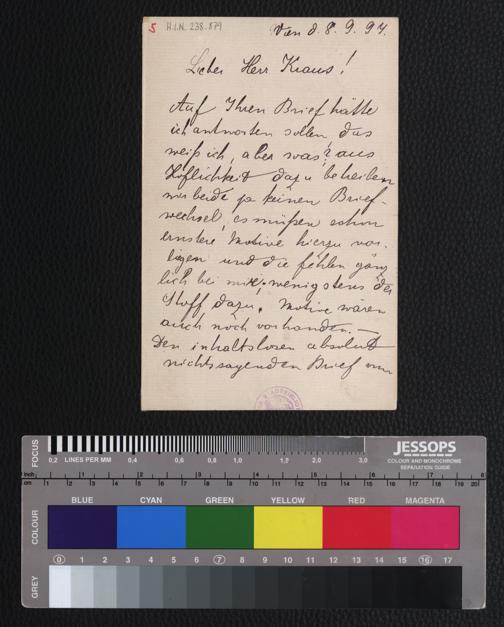 5 H.I.N. 238.879
Wien d. 8. 9. 94.
Lieber Herr Kraus!
Auf Ihren Brief hätte
ich antworten sollen das
weiß ich, aber was? aus
Höflichkeit dazu betreiben
wir beide ja keinen Brief-
wechsel, es müßen schon
ernstere Motive hierzu vor-
liegen und die fehlen gänz
lich bei mir, wenigstens der
Stoff dazu. Motive wären
auch noch vorhanden. —
Den inhaltslosen absolut
nichtssagenden Brief von
FOCUS
JESSOPS
COLOUR AND MONOCHROME
SEPARATION GUIDE
0,2 LINES PER MM 0,4 0,6 0,8 1,0 2,0 3,0
inch 1 2 3 4 5 6 7 8
cm 1 2 3 4 5 6 7 8 9 10 11 12 13 14 15 16 17 18 19 20
COLOUR
BLUE CYAN GREEN YELLOW RED MAGENTA
0 1 2 3 4 5 6 7 8 9 10 11 12 13 14 15 16 17
GREY